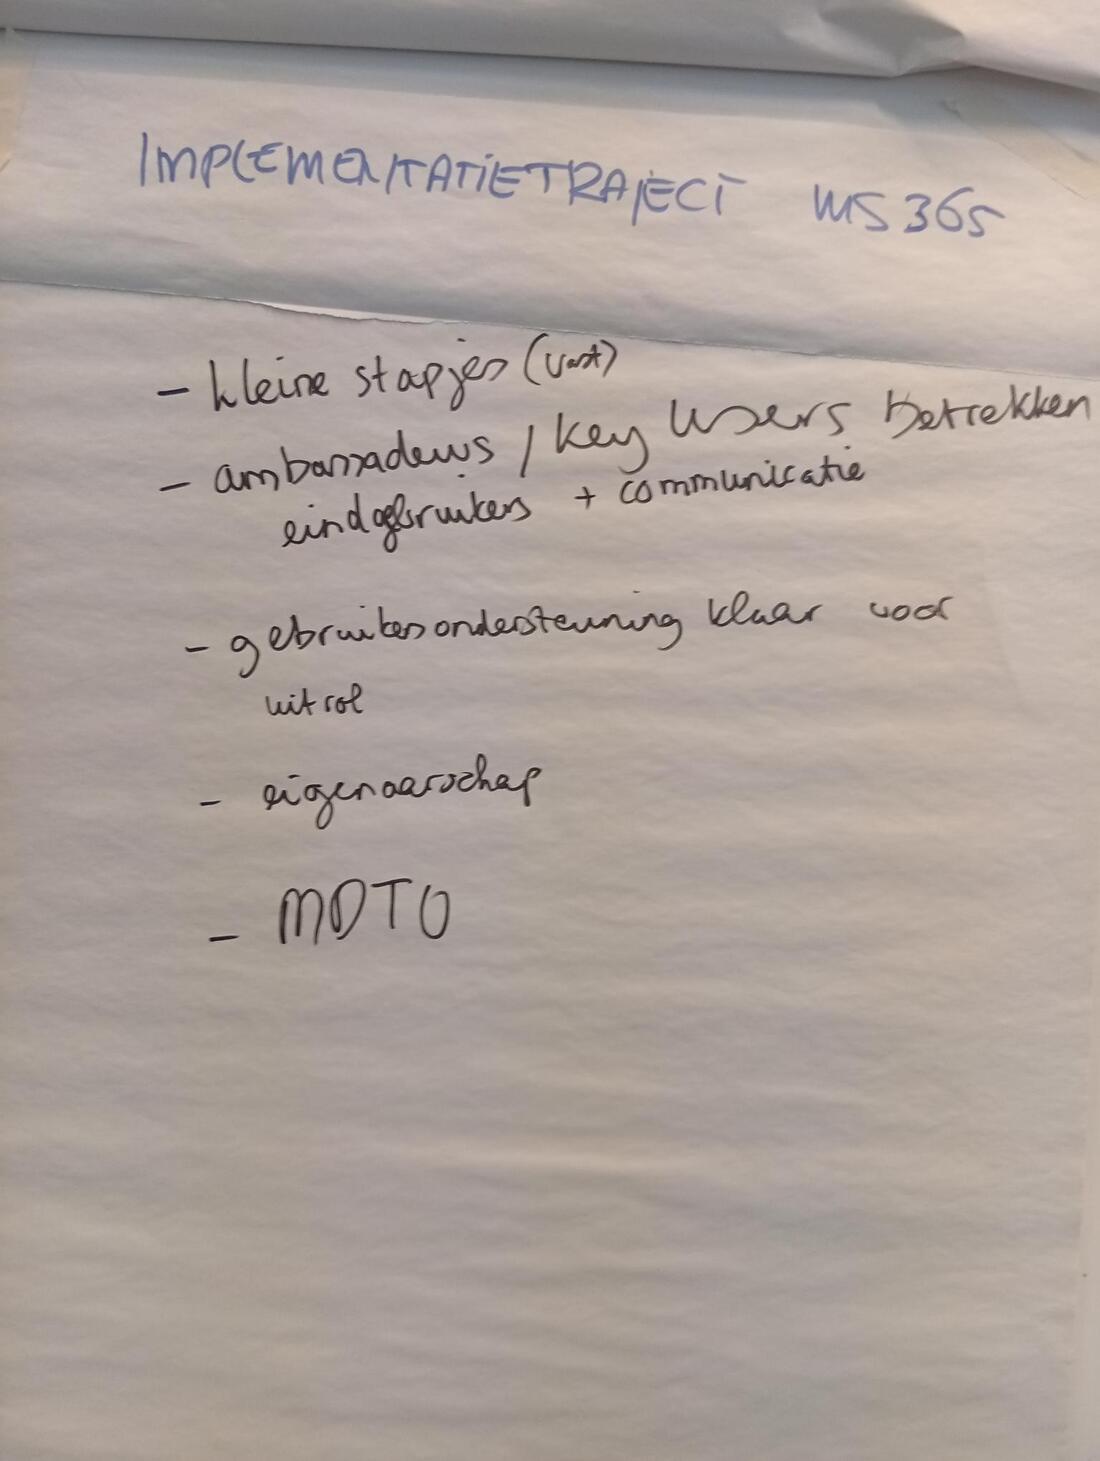 IMPLEMENTATIETRAJECT MS 365
- kleine stapjes (vast)
- ambassadeurs / key users betrekken
eindgebruikers + communicatie
- gebruikersondersteuning klaar voor
uitrol
- eigenaarschap
- MDTO